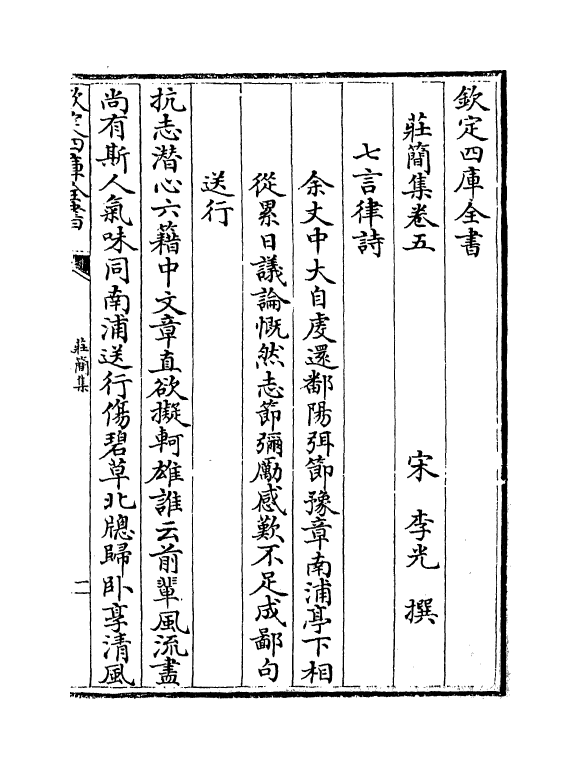 欽定四庫全書
莊簡集卷五
宋　李光　撰
七言律詩
余丈中大自虔還鄱陽弭節豫章南浦亭下相
從累日議論慨然志節彌勵感歎不足成鄙句
送行
抗志潛心六籍中文章直欲擬軻雄誰云前輩風流盡
尚有斯人氣味同南浦送行傷碧草北牕歸臥享清風
欽定四庫全書
莊簡集
一